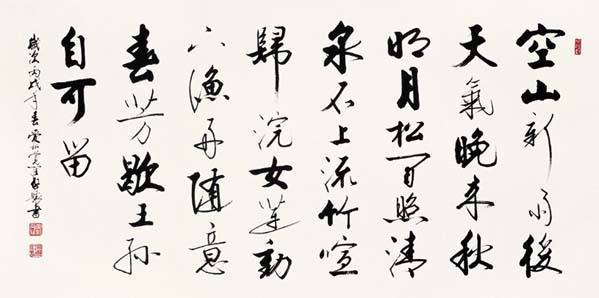 空山新雨後
天氣晚来秋
明月松間照清
泉石上流竹喧
歸浣女蓮動
下漁舟隨意
春芳歇王孫
自可留
歲次丙戌年春